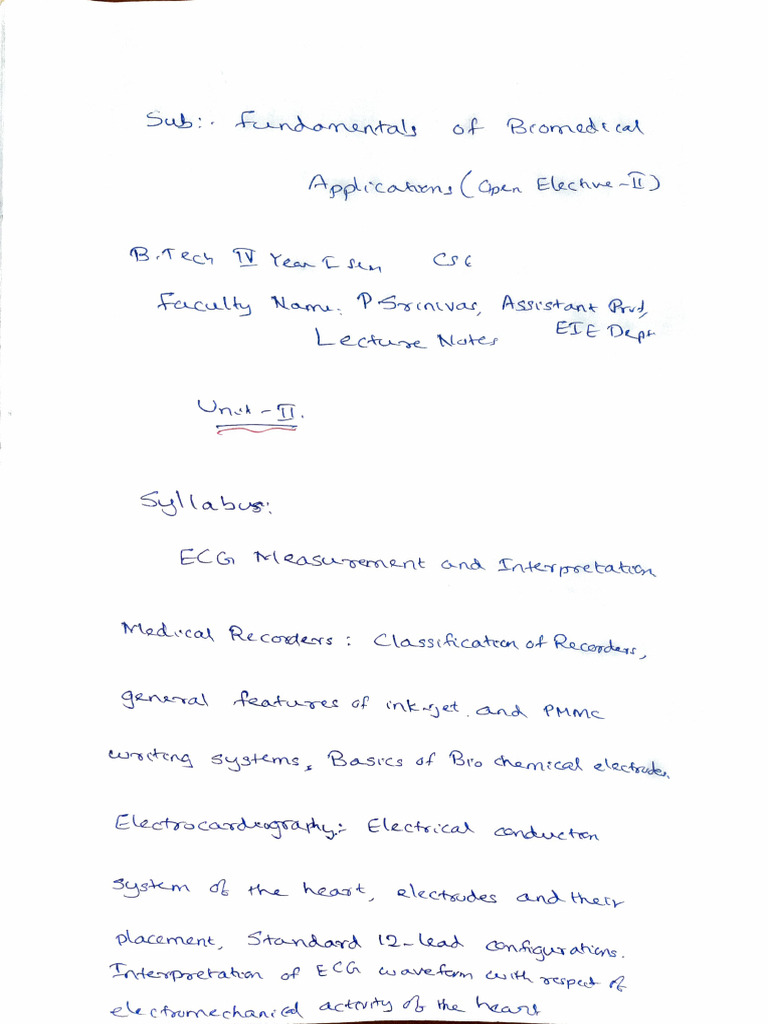 Sub:- Fundamentals of Biomedical
Applications (Open Elective-II)
B.Tech IV Year I Sem CSE
Faculty Name: P Srinivas, Assistant Prof,
EIE Dept
Lecture Notes
Unit-II.
Syllabus:
ECG Measurement and Interpretation
Medical Recorders: Classification of Recorders,
general features of ink-jet and PMMC
writing systems, Basics of Bio chemical electrodes.
Electrocardiography:- Electrical conduction
system of the heart, electrodes and their
placement, Standard 12-lead configurations.
Interpretation of ECG waveform with respect of
electromechanical activity of the heart